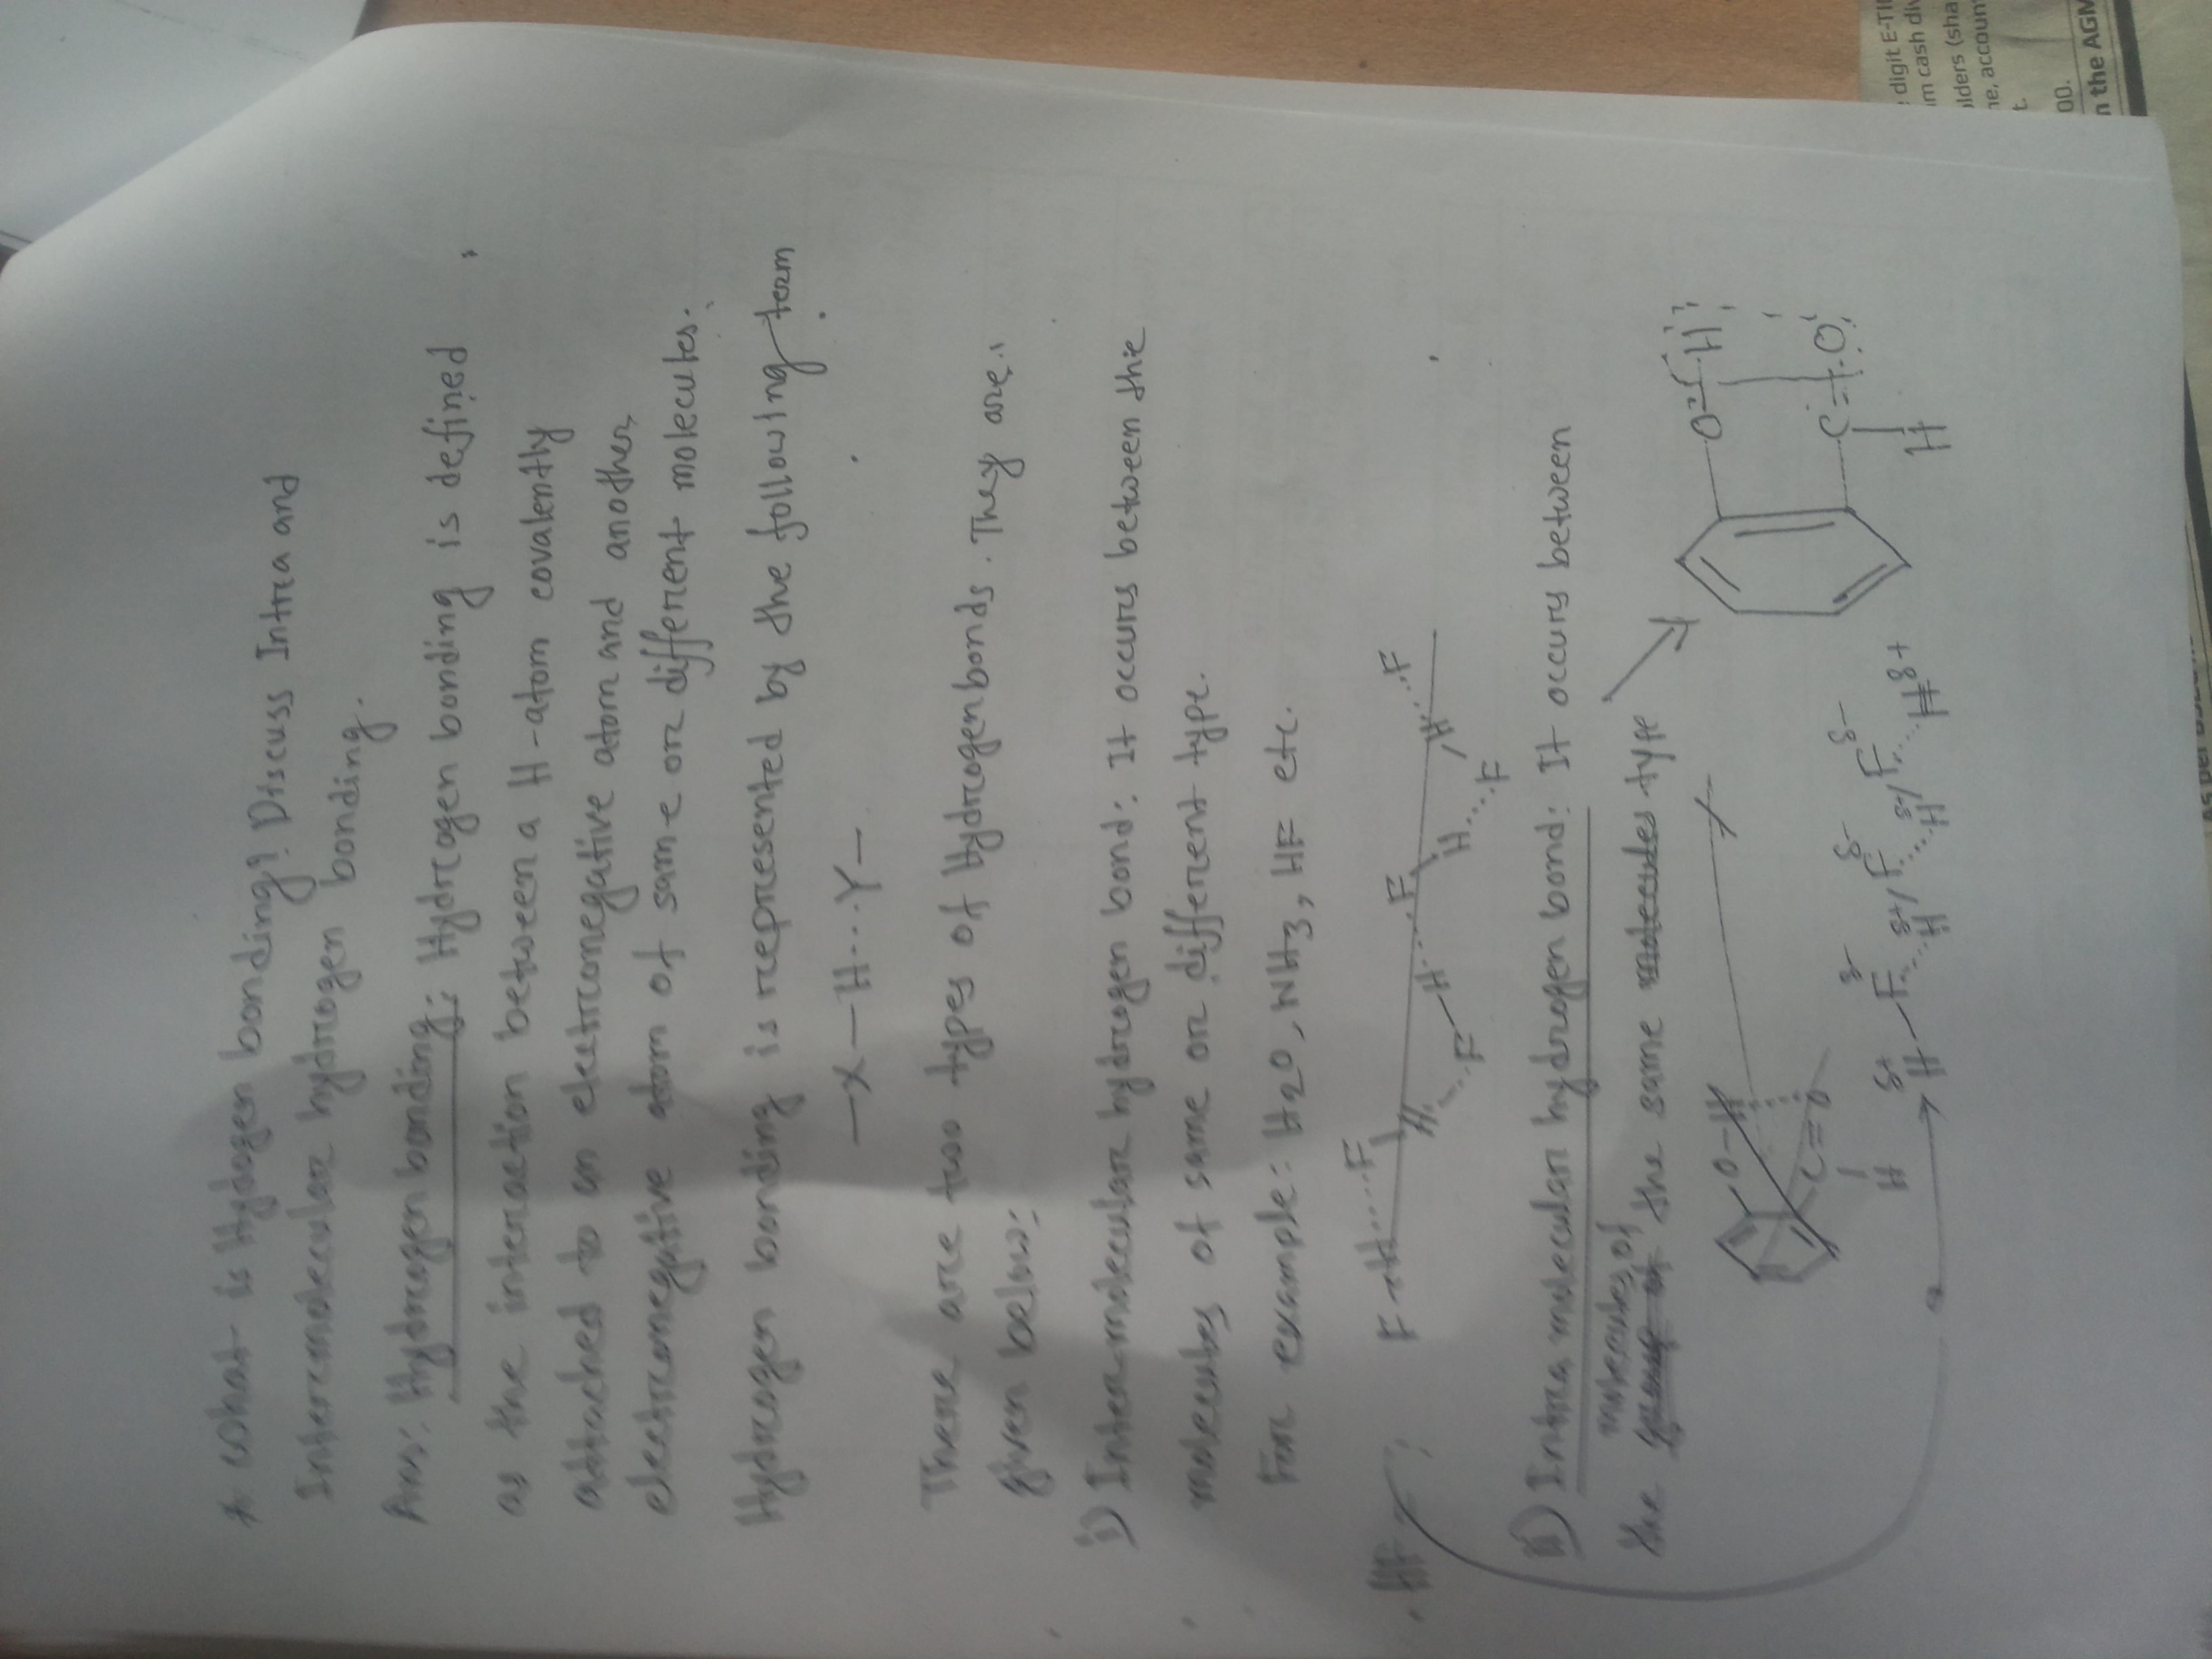 * What is Hydogen bonding? Discuss Intra and
Intermolecular hydrogen bonding.
Ans: Hydrogen bonding: Hydrogen bonding is defined
as the interaction between a H-atom covalently
attached to an electronegative atom and another
electronegative atom of same or different molecules.
Hydrogen bonding is represented by the following term
—X—H...Y—
There are two types of Hydrogen bonds. They are
given below:
i) Intermolecular hydrogen bond: It occurs between the
molecules of same or different type.
For example: H2O, NH3, HF etc.
HF:
F—H....F
H....F—H....F
H....F
H...F
ii) Intra molecular hydrogen bond: It occurs between
molecules of
the the same molecules type
O—H
C=O
H
O—H
C=O
H
δ+ δ- δ+ δ- δ+ δ- δ+
H—F....H/F....H/F....H
digit E-TI
m cash div
lders (sha
ne, accoun
t.
00.
n the AGM